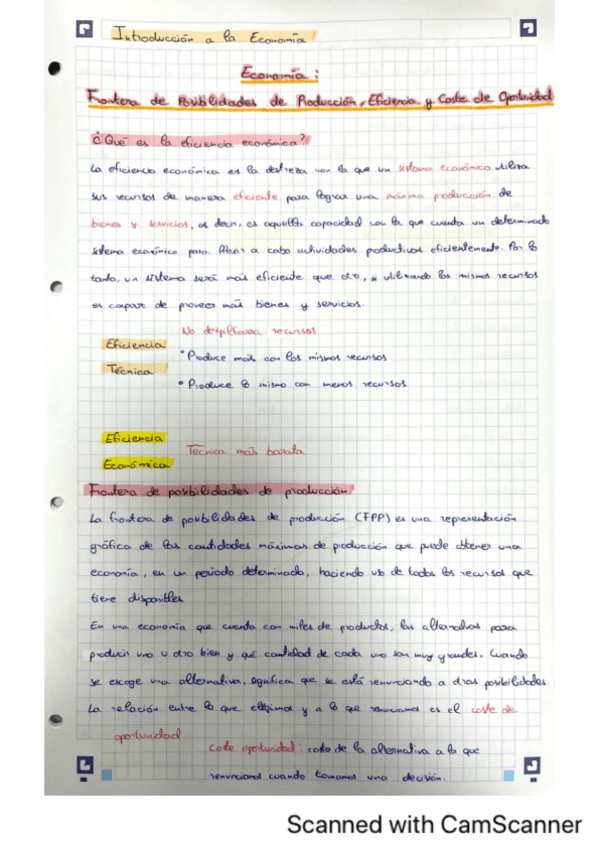 Introducción a la Economía
Economía:
Frontera de Posibilidades de Producción, Eficiencia y Coste de Oportunidad
¿Qué es la eficiencia económica?
La eficiencia económica es la destreza con la que un sistema económico utiliza
sus recursos de manera eficiente para lograr una máxima producción de
bienes y servicios, es decir, es aquella capacidad con la que cuenta un determinado
sistema económico para llevar a cabo actividades productivas eficientemente. Por lo
tanto, un sistema será más eficiente que otro, si utilizando los mismos recursos
es capaz de proveer más bienes y servicios.
No despilfarra recursos
Eficiencia
Técnica
• Produce más con los mismos recursos
• Produce lo mismo con menos recursos
Eficiencia
Económica
Técnica más barata
Frontera de posibilidades de producción
La frontera de posibilidades de producción (FPP) es una representación
gráfica de las cantidades máximas de producción que puede obtener una
economía, en un periodo determinado, haciendo uso de todos los recursos que
tiene disponibles
En una economía que cuenta con miles de productos, las alternativas para
producir uno u otro bien y qué cantidad de cada uno son muy grandes. Cuando
se escoge una alternativa, significa que se está renunciando a otras posibilidades.
La relación entre lo que elegimos y a lo que renunciamos es el coste de
oportunidad
Coste oportunidad: coste de la alternativa a la que
renunciamos cuando tomamos una decisión.
Scanned with CamScanner